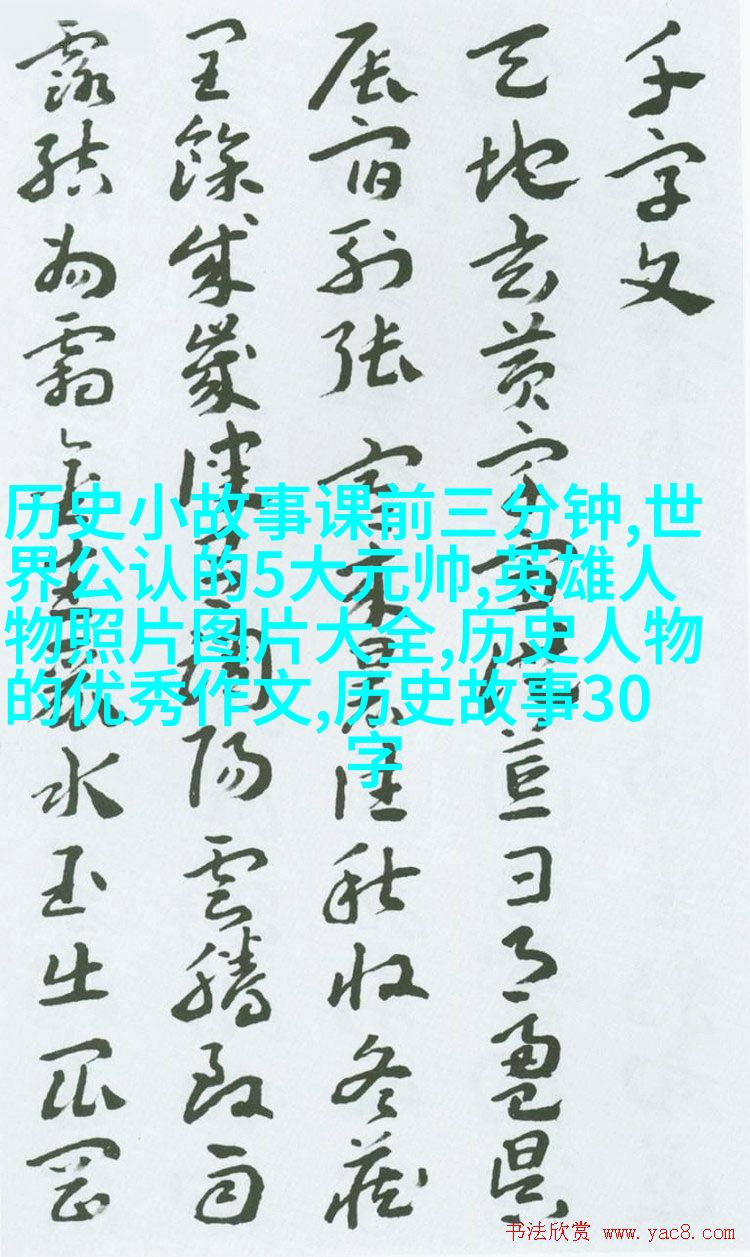 千字文
天地玄黃宇宙洪荒日月盈昃
辰宿列張寒來暑往秋收冬藏
閏餘成歲律呂調陽雲騰致雨
露結為霜金生麗水玉出崑岡
历史小故事课前三分钟,世
界公认的5大元帅,英雄人
物照片图片大全,历史人物
的优秀作文,历史故事30
字
书法欣赏 www.yac8.com